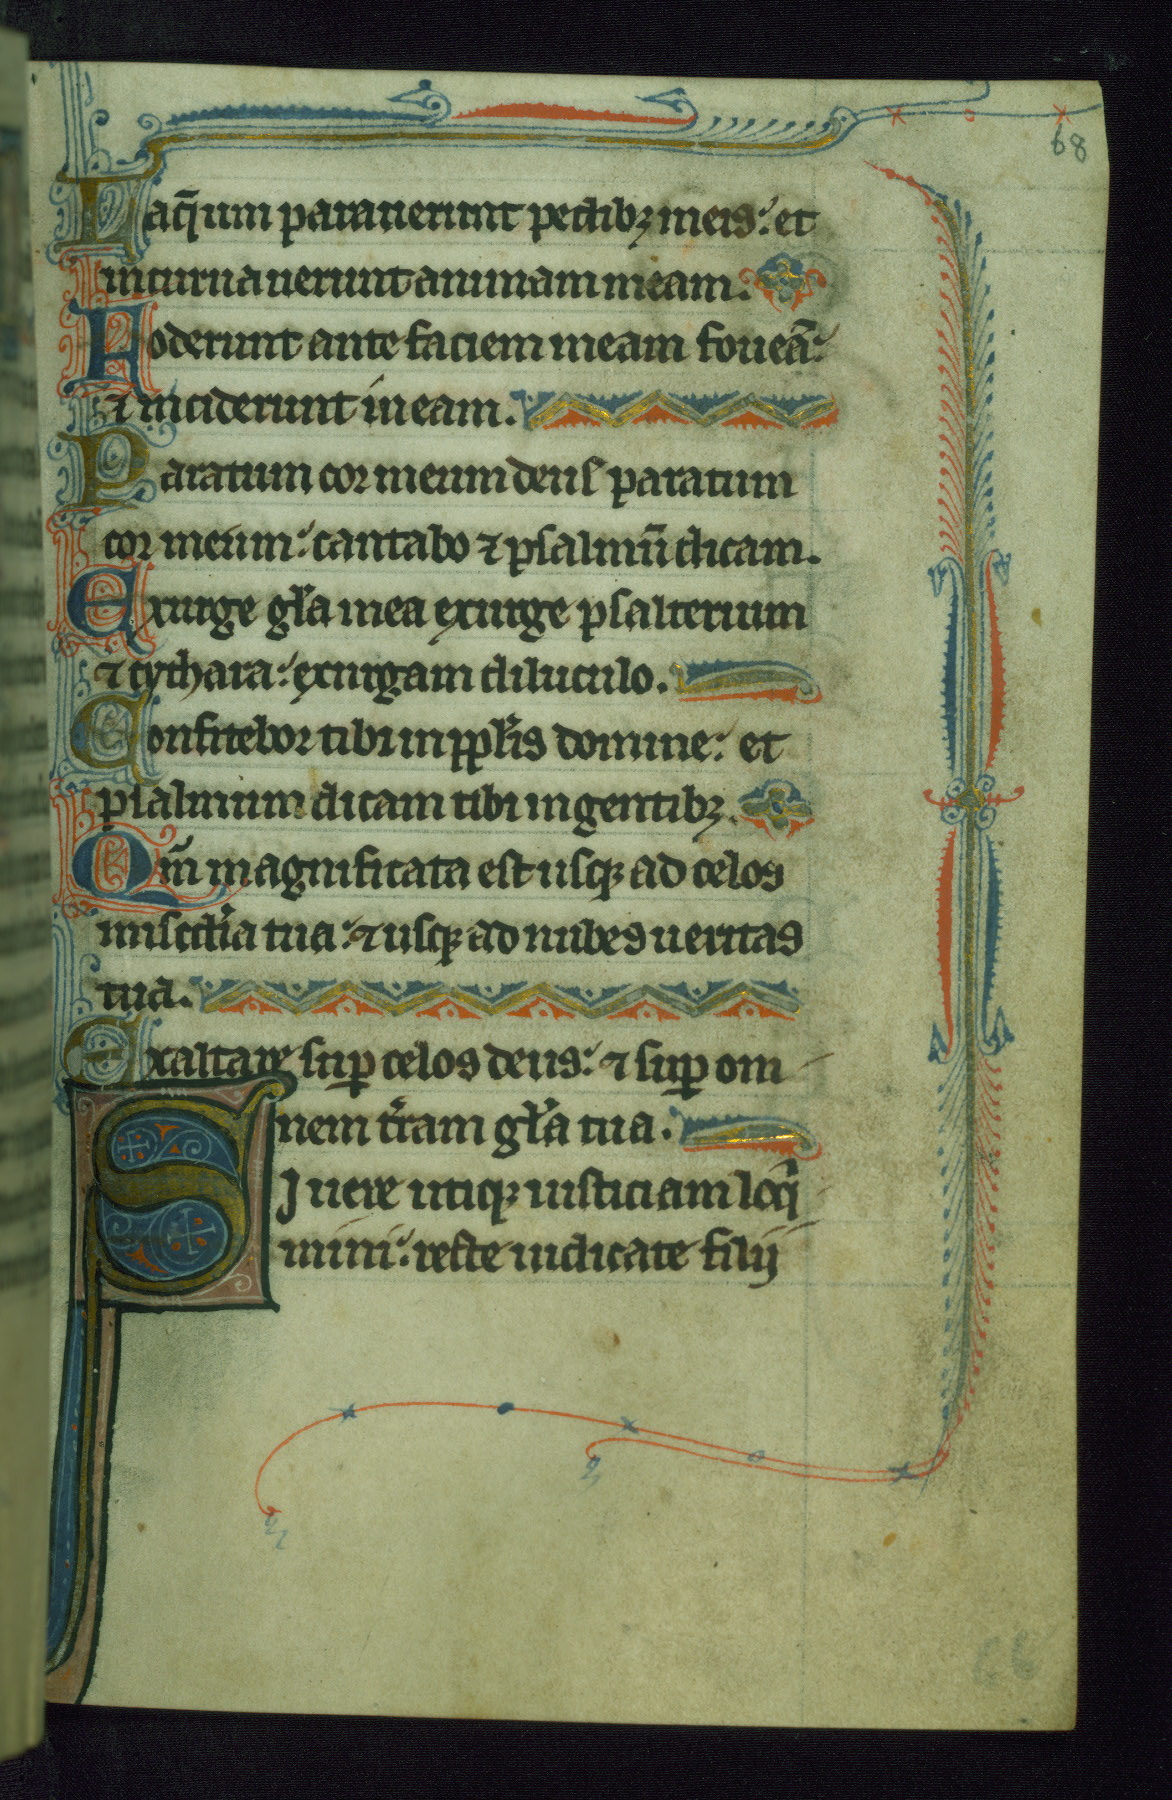 68
Laq̄um parauerunt pedibꝫ meis: et
incuruauerunt animam meam.
Foderunt ante faciem meam foueā:
⁊ inciderunt in eam.
Paratum cor meum deus paratum
cor meum: cantabo ⁊ psalmū dicam.
Exurge gl̄a mea exurge psalterium
⁊ cythara: exurgam diluculo.
Confitebor tibi in ppl̄is domine: et
psalmum dicam tibi in gentibꝫ.
Qm̄ magnificata est usqꝫ ad celos
misc̄dia tua: ⁊ usqꝫ ad nubes ueritas
tua.
Exaltare suꝑ celos deus: ⁊ suꝑ om
nem t̄ram gl̄a tua.
SI uere utiqꝫ iusticiam loq̄
mini: recte iudicate filij